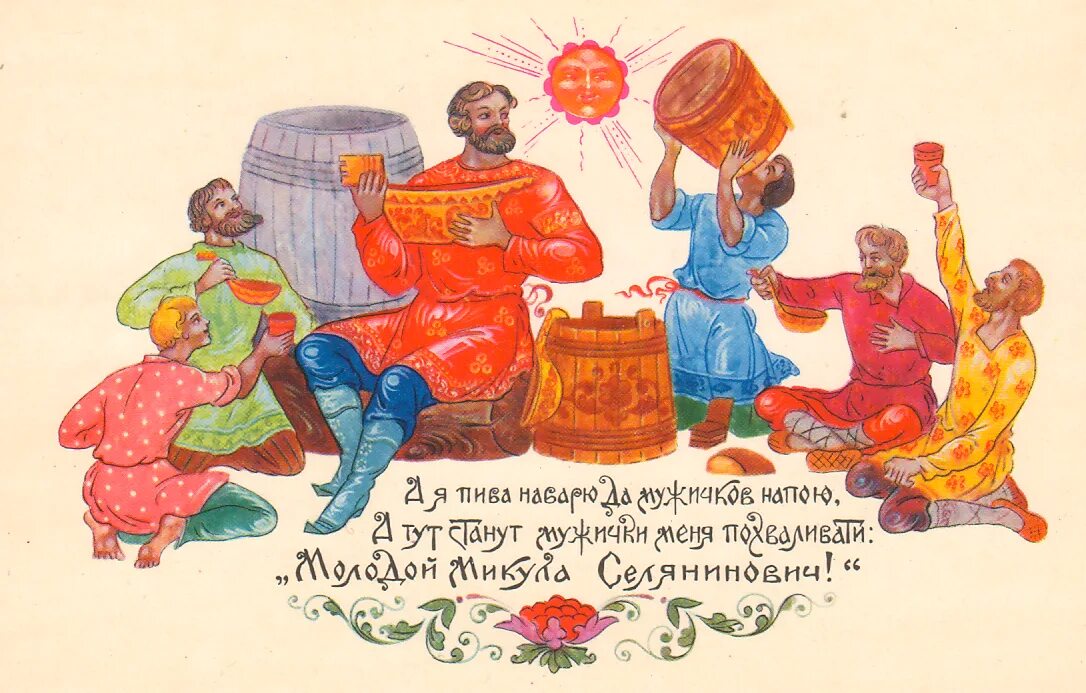 А я пива наварю да мужичков напою,
А тут станут мужички меня похваливати:
„Молодой Микула Селянинович!“